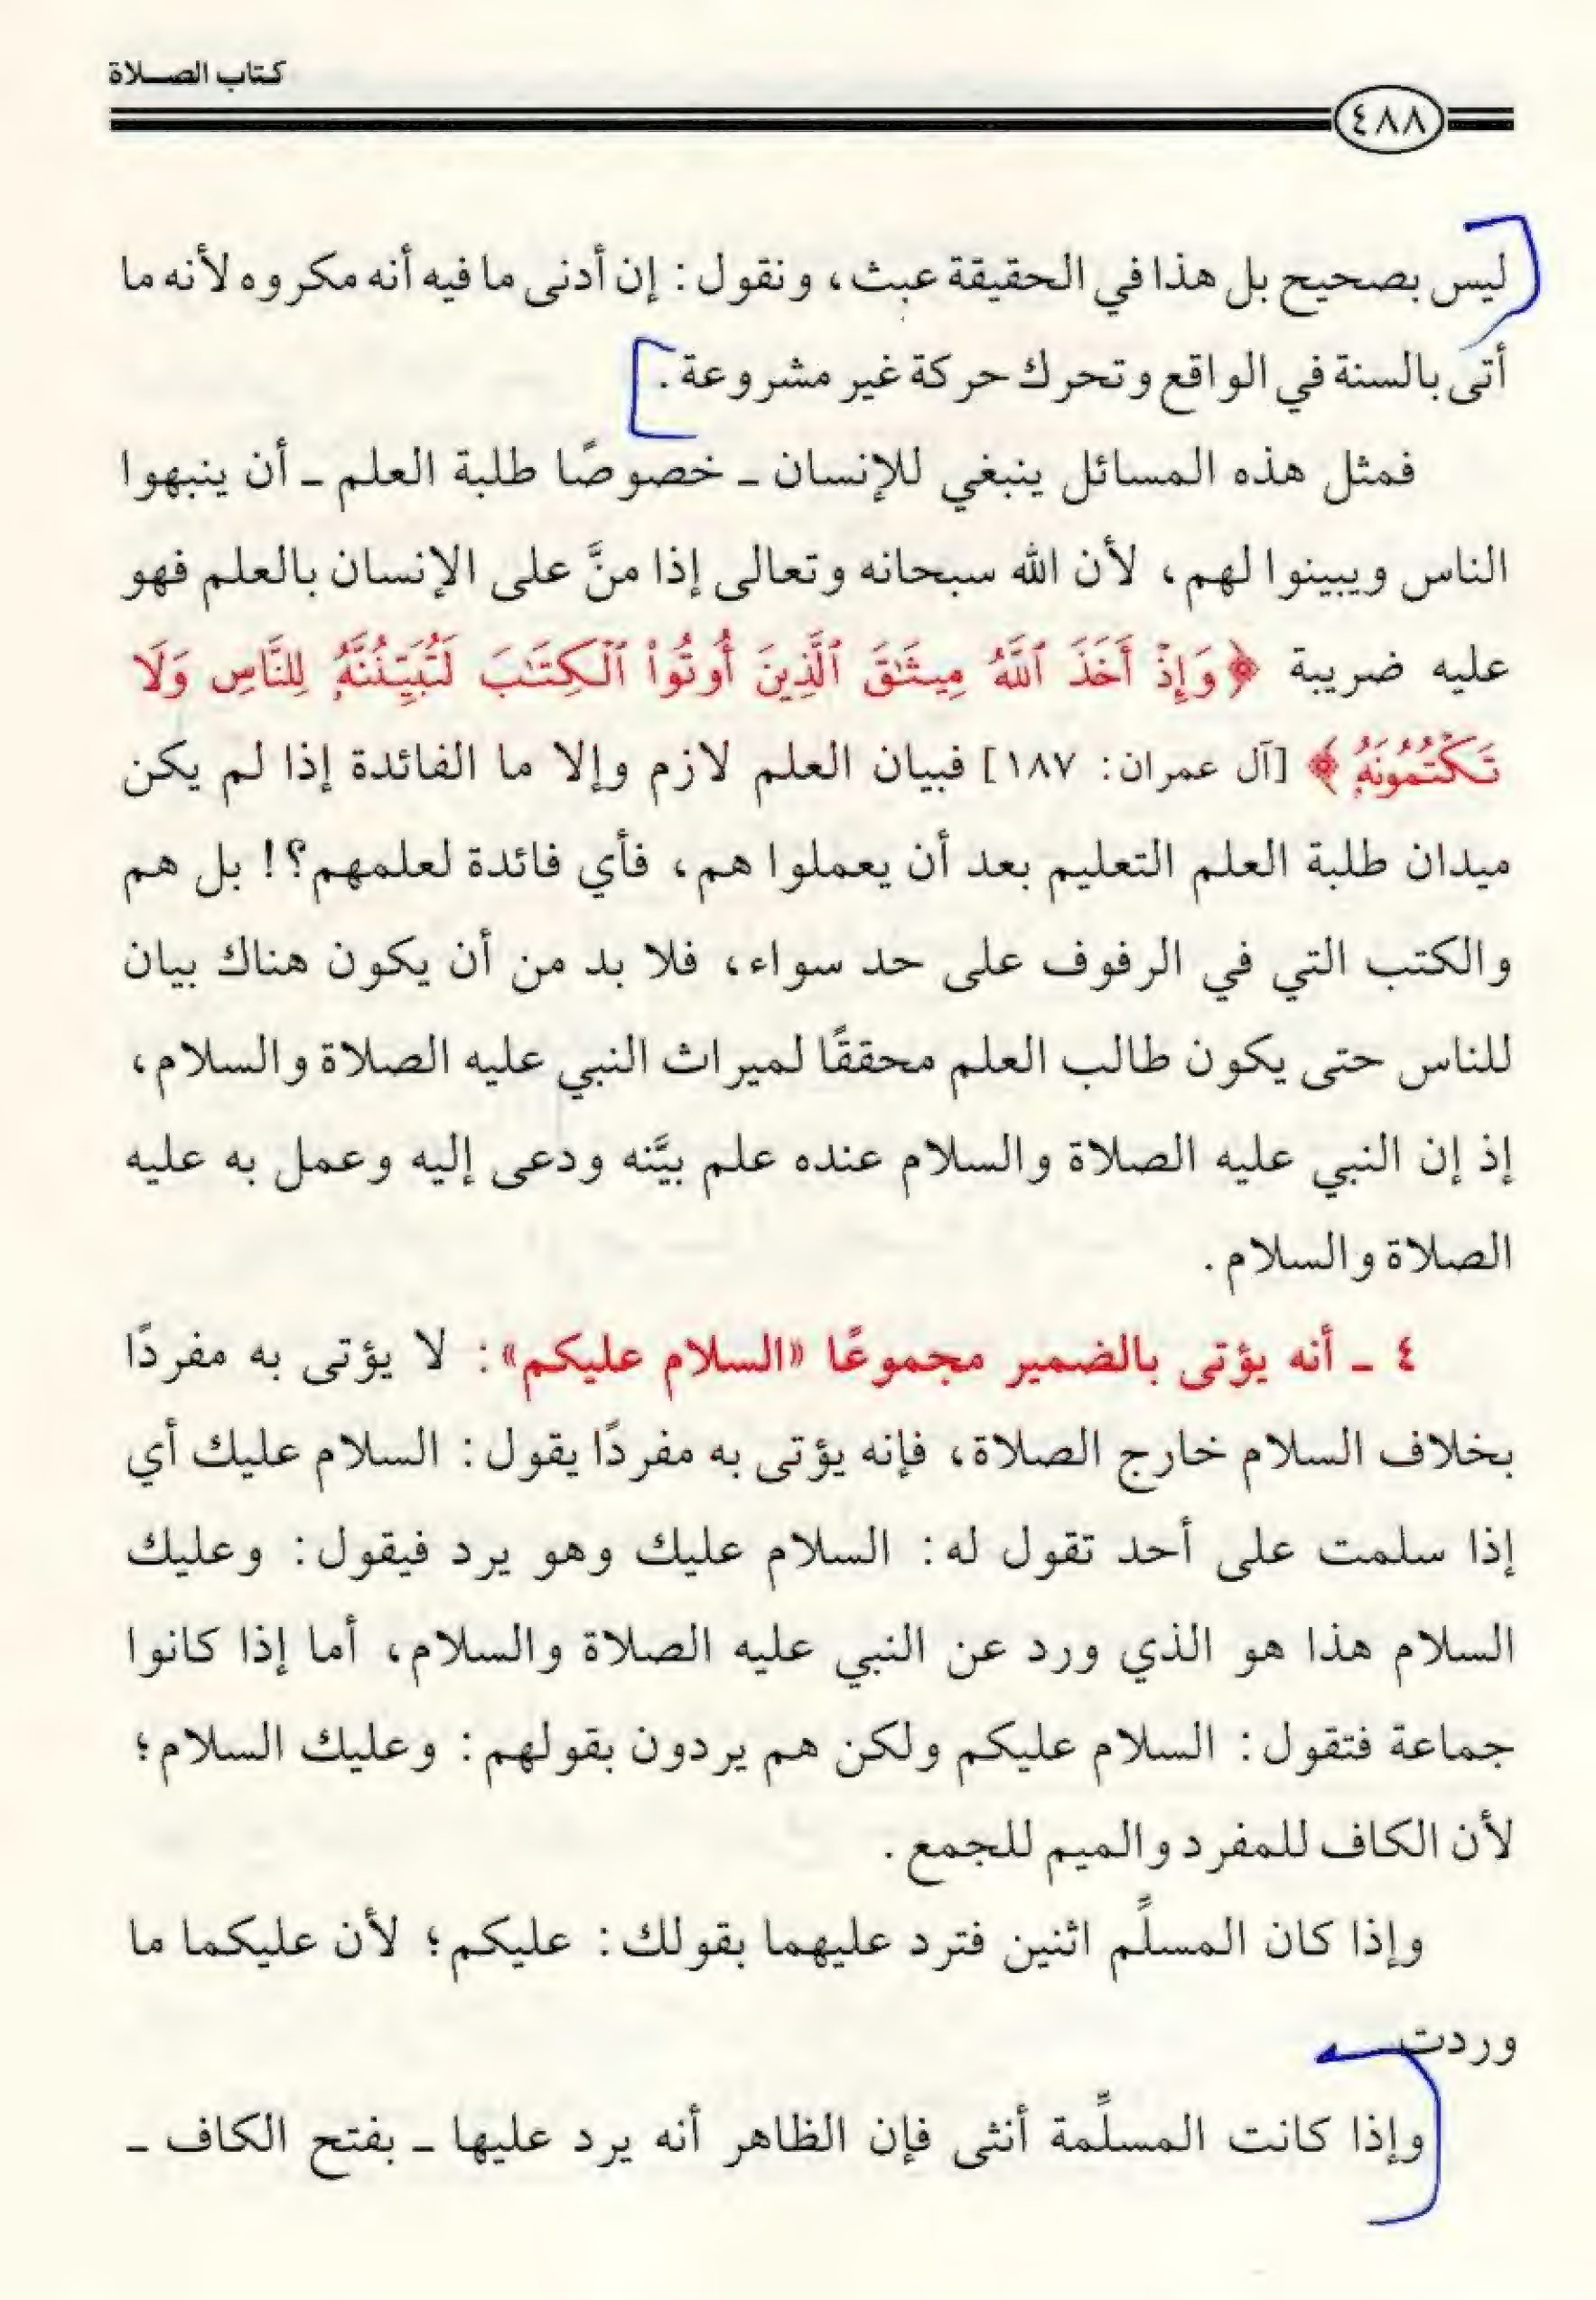 كتاب الصلاة
٤٨٨
ليس بصحيح بل هذا في الحقيقة عبث، ونقول: إن أدنى ما فيه أنه مكروه لأنه ما
أتى بالسنة في الواقع وتحرك حركة غير مشروعة.
فمثل هذه المسائل ينبغي للإنسان ـ خصوصًا طلبة العلم ـ أن ينبهوا
الناس ويبينوا لهم، لأن الله سبحانه وتعالى إذا منَّ على الإنسان بالعلم فهو
عليه ضريبة ﴿وَإِذْ أَخَذَ ٱللَّهُ مِيثَٰقَ ٱلَّذِينَ أُوتُوا۟ ٱلْكِتَٰبَ لَتُبَيِّنُنَّهُۥ لِلنَّاسِ وَلَا
تَكْتُمُونَهُۥ﴾ [آل عمران: ١٨٧] فبيان العلم لازم وإلا ما الفائدة إذا لم يكن
ميدان طلبة العلم التعليم بعد أن يعملوا هم، فأي فائدة لعلمهم؟! بل هم
والكتب التي في الرفوف على حد سواء، فلا بد من أن يكون هناك بيان
للناس حتى يكون طالب العلم محققًا لميراث النبي عليه الصلاة والسلام،
إذ إن النبي عليه الصلاة والسلام عنده علم بيَّنه ودعى إليه وعمل به عليه
الصلاة والسلام.
٤ ـ أنه يؤتى بالضمير مجموعًا «السلام عليكم»: لا يؤتى به مفردًا
بخلاف السلام خارج الصلاة، فإنه يؤتى به مفردًا يقول: السلام عليك أي
إذا سلمت على أحد تقول له: السلام عليك وهو يرد فيقول: وعليك
السلام هذا هو الذي ورد عن النبي عليه الصلاة والسلام، أما إذا كانوا
جماعة فتقول: السلام عليكم ولكن هم يردون بقولهم: وعليك السلام؛
لأن الكاف للمفرد والميم للجمع.
وإذا كان المسلِّم اثنين فترد عليهما بقولك: عليكم؛ لأن عليكما ما
وردت
وإذا كانت المسلِّمة أنثى فإن الظاهر أنه يرد عليها ـ بفتح الكاف ـ